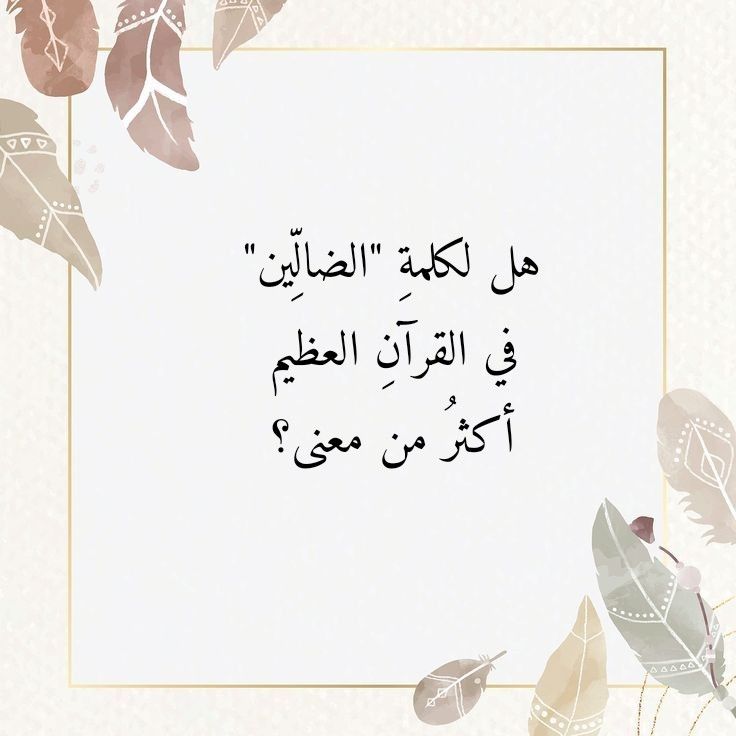 هل لكلمةِ "الضالِّين"
في القرآنِ العظيم
أكثرُ من معنى؟